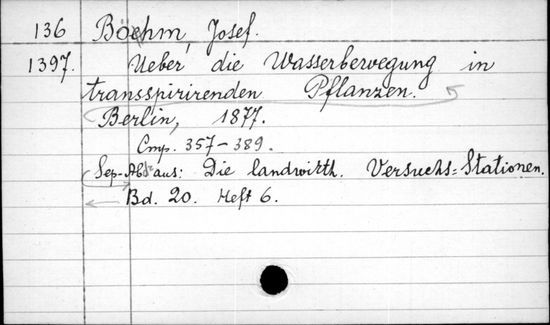 136 Boehm, Josef.
1397. Ueber die Wasserbewegung in
transspirirenden Pflanzen.
Berlin, 1877.
Стр. 357-389.
Sep-Abdr aus: Die landwirth. Versuchs-Stationen.
Bd. 20. Heft 6.